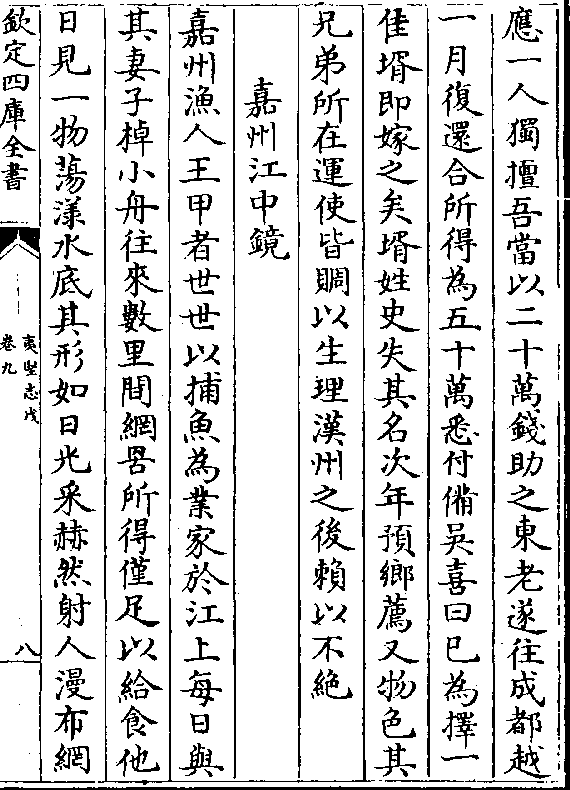 應一人獨擅吾當以二十萬錢助之東老遂往成都越
一月復還合所得為五十萬悉付備吴喜曰已為擇一
佳壻即嫁之矣壻姓史失其名次年預鄉薦又物色其
兄弟所在運使皆賙以生理漢州之後賴以不絶
嘉州江中鏡
嘉州漁人王甲者世世以捕魚為業家於江上每日與
其妻子棹小舟往來數里間網罟所得僅足以給食他
日見一物蕩漾水底其形如日光采赫然射人漫布網
欽定四庫全書
夷堅志戊
卷九
八